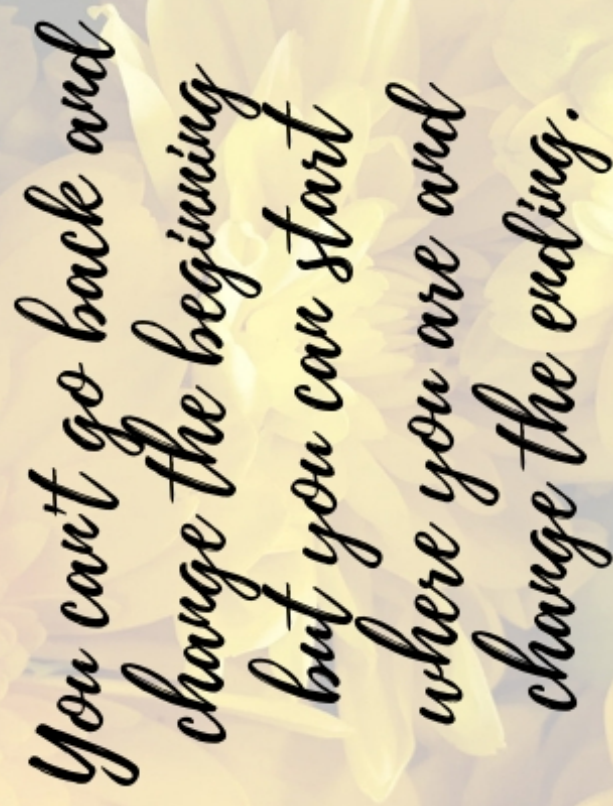 You can't go back and
change the beginning
but you can start
where you are and
change the ending.